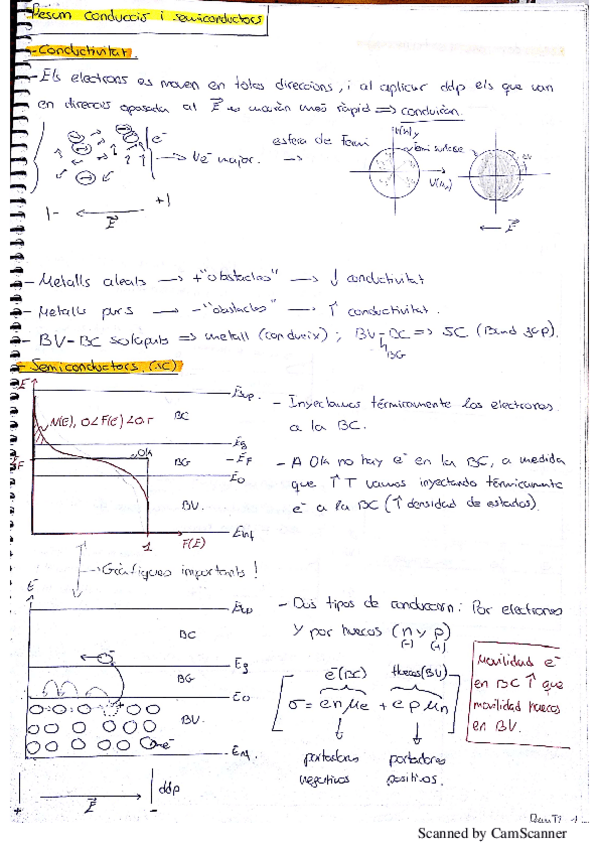 Resum conducció i semiconductors
- Conductivitat.
- Els electrons es mouen en totes direccions, i al aplicar ddp els que van
en direcció oposada al E es mouràn més ràpid => conduiràn.
e-
esfera de Fermi
Fermi surface
E
- Metalls aleats → + "obstacles" → ↓ conductivitat
- Metalls purs → - "obstacles" → ↑ conductivitat.
- BV-BC solapats => metall (condueix) ; BV-BC => SC (Band gap).
BG
- Semiconductors (SC)
E
Esup.
N(E), 0<F(E)<1
BC
Eg
0K
BG
EF
E0
BV.
Einf
1
F(E)
- Inyectamos térmicamente los electrones
a la BC.
- A 0K no hay e- en la BC, a medida
que ↑T vamos inyectando térmicamente
e- a la BC (↑ densidad de estados).
Gràfiques importants!
E
BC
Eg
BG
E0
BV.
Einf
e-
- Dos tipos de conducción: Por electrones
y por huecos (n y p)
(-) (+)
e-(BC) Huecos(BV)
σ = e n μe + e p μn
portadores negativos
portadores positivos.
Movilidad e-
en BC ↑ que
movilidad huecos
en BV.
+ E - ddp
Scanned by CamScanner